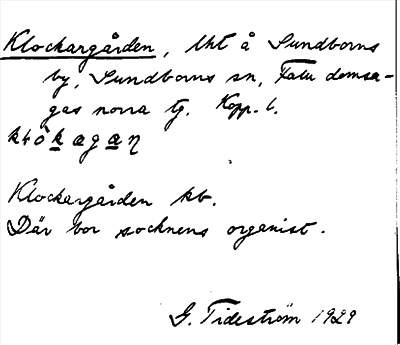 Klockargården, lht å Sundborns
by, Sundborns sn, Falu domsa-
gas norra tg. Kopp. l.
Klockargården kb.
Där bor socknens organist.
G. Tideström 1929